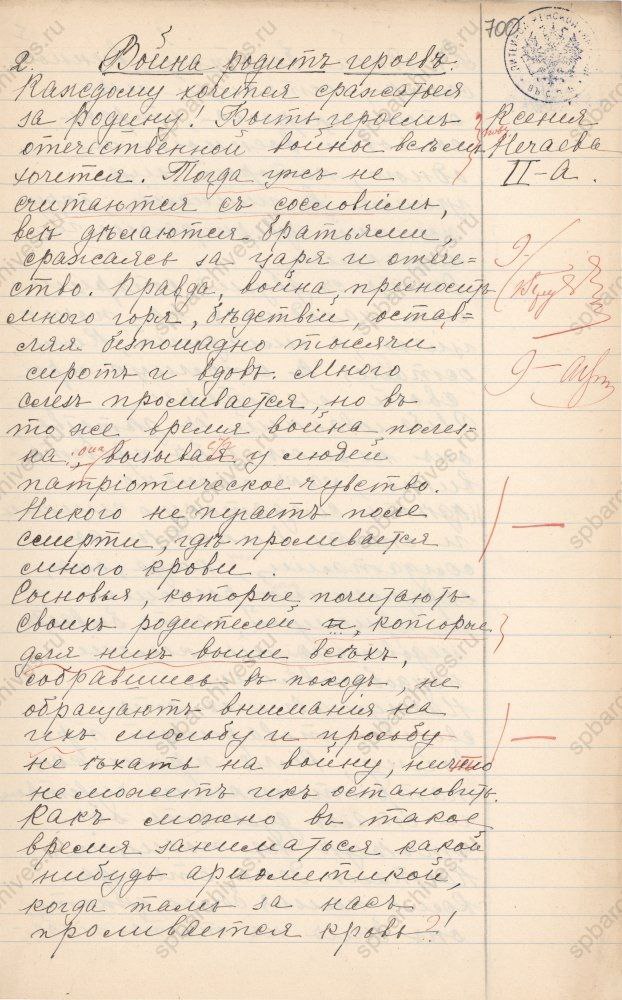 700
2. Война родитъ героевъ.
Каждому хочется сражаться
за Родину! Быть героемъ
отечественной войны всѣмъ
хочется. Тогда ужъ не
считаются съ сословіемъ,
всѣ дѣлаются братьями,
сражаясь за царя и отече=
ство. Правда, война приноситъ
много горя, бѣдствій, остав=
ляя безпощадно тысячи
сиротъ и вдовъ. Много
слезъ проливается, но въ
то же время война полез=
на, она вызывая у людей
патріотическое чувство.
Никого не пугаетъ поле
смерти, гдѣ проливается
много крови.
Сыновья, которые почитаютъ
своихъ родителей и, которые
для нихъ выше всѣхъ,
собравшись въ походъ, не
обращаютъ вниманія на
ихъ мольбу и просьбу
не ѣхать на войну, ничто
не можетъ ихъ остановить.
Какъ можно въ такое
время заниматься какой
нибудь ариѳметикой,
когда тамъ за насъ
проливается кровь?!
Ксения
Нечаева
II-А.
9-
9-
spbarchives.ru